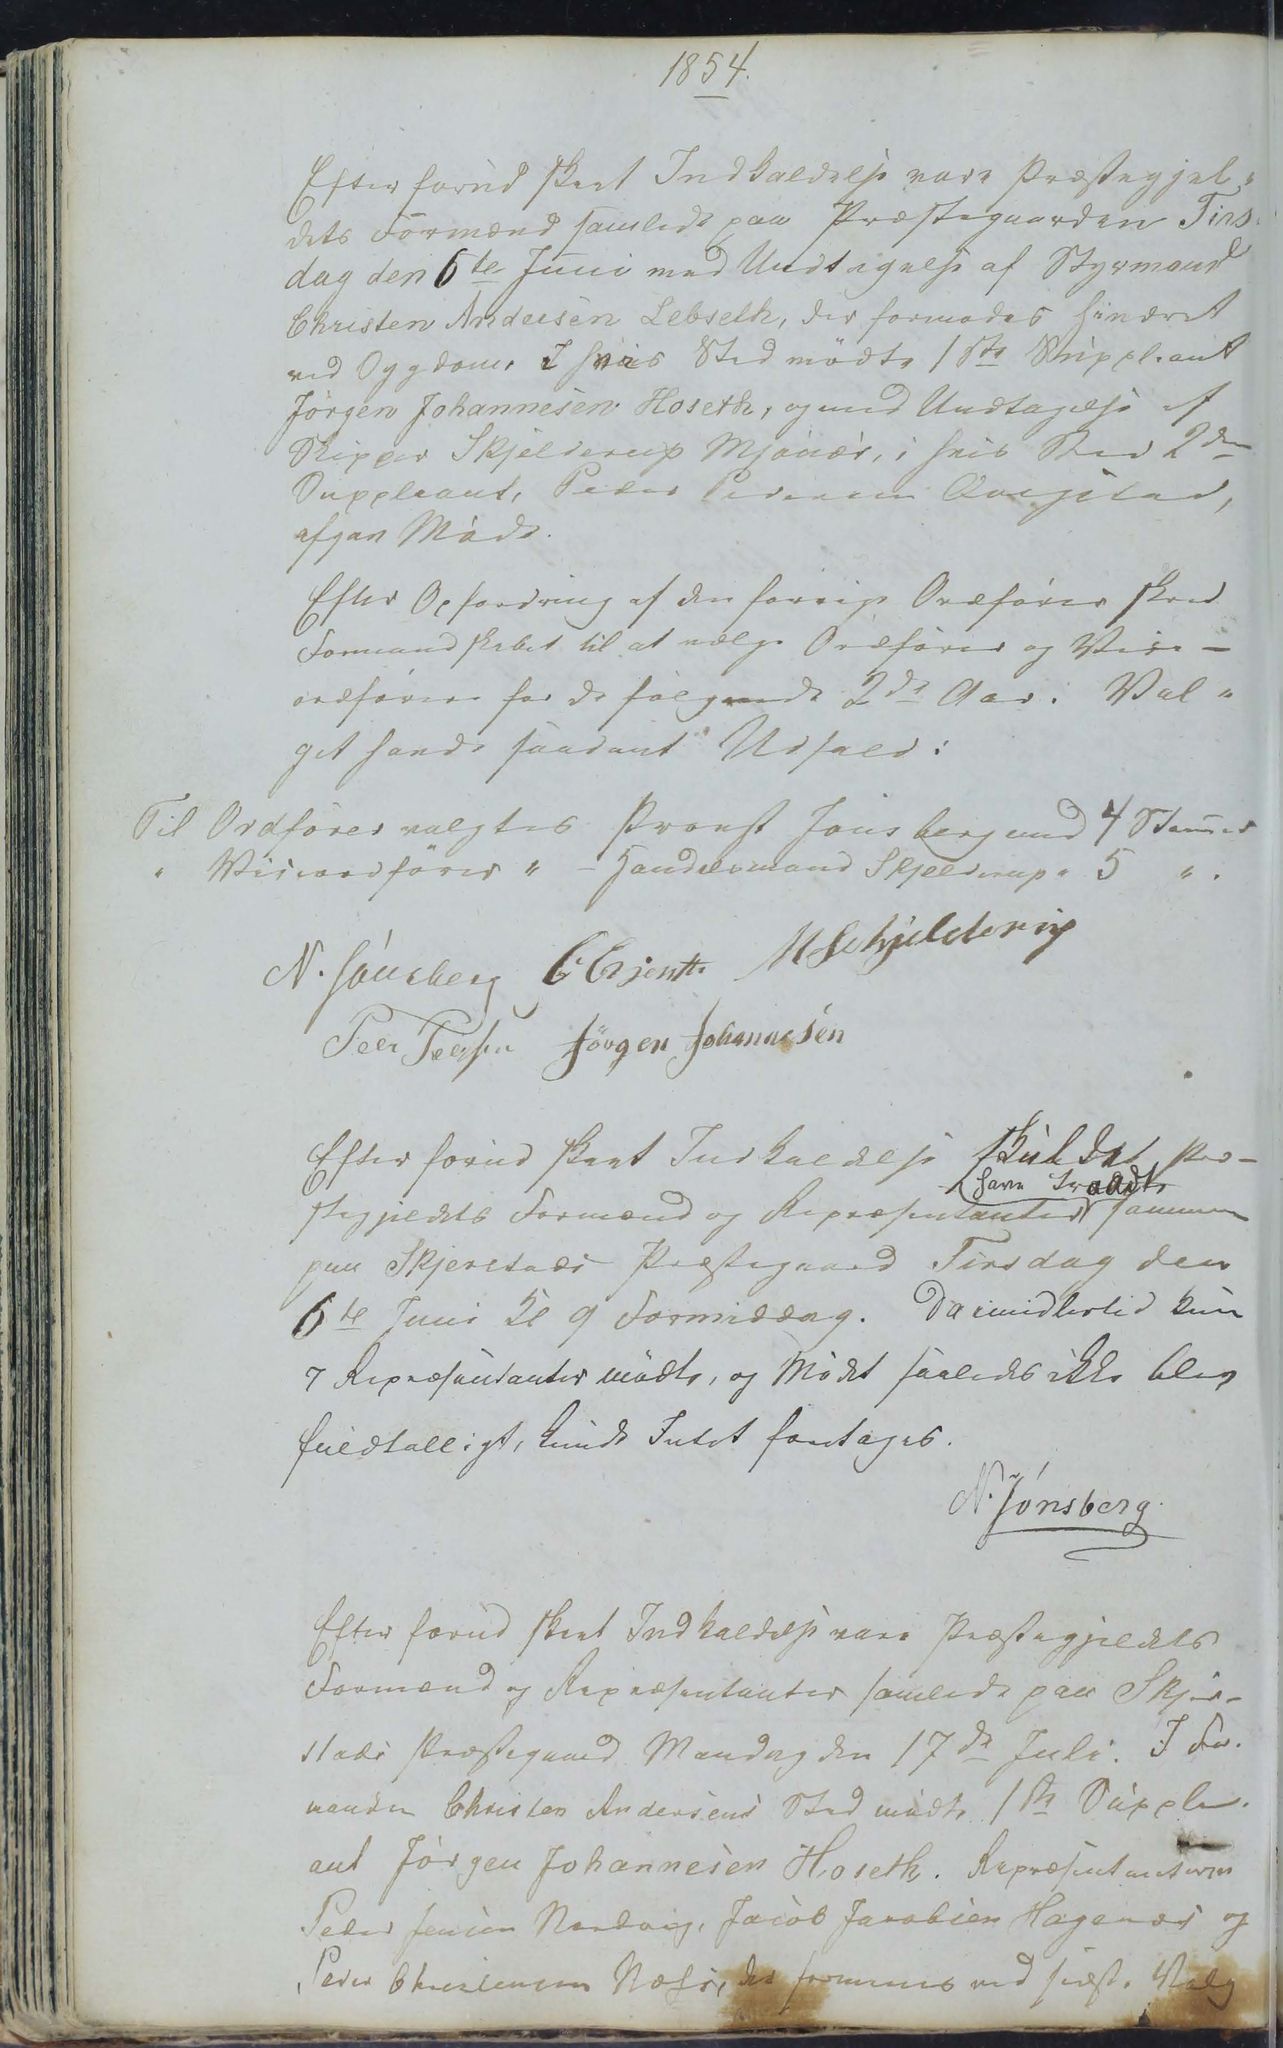 1854.
Efter forud skeet Indkaldelse vare Præstegjel-
dets Formænd samlede paa Præstegaarden Tirs-
dag den 6te Juni med Undtagelse af Styrmand
Christen Andersen Lebseth, der formodes hindret
ved Sygdom. I hvis Sted mödte 1ste Suppleant
Jörgen Johannesen Hoseth, og med Undtagelse af
Skipper Skjelderup Mjönes, i hvis Sted 2den
Suppleant, Peder Pedersen
afgav Möde.
Efter Opfordring af den forrige Ordförer skred
Formandskabet til at vælge Ordförer og Vice-
ordförer for de fölgende 2de Aar. Val-
get havde saadant Udfald:
Til Ordförer valgtes Provst Jönsberg med 4 Stemmer
" Viceordförer " - Handelsmand Skjelderup " 5 " .
N. Jönsberg M Schjelderup
Peer Peersen Jörgen Johannesen
Efter forud skeet Indkaldelse skulde Præ-
have traadt
stegjeldets Formænd og Repræsentanter sammen
paa Skjerstad Præstegaard Tirsdag den
6te Juni Kl 9 Formiddag. Da imidlertid kun
7 Repræsentanter mödte, og Mödet saaledes ikke blev
fuldtalligt, kunde Intet foretages.
N. Jönsberg.
Efter forud skeet Indkaldelse vare Præstegjeldets
Formænd og Repræsentanter samlede paa Skjer-
stad Præstegaard Mandag den 17de Juli. I For-
manden Christen Andersens Sted mödte 1ste Supple-
ant Jörgen Johannesen Hoseth. Repræsentanterne
Peder Jensen Nordvig, Jacob Jacobsen Hagenæs og
Peder Christensen Næss, der ved sidste Valg